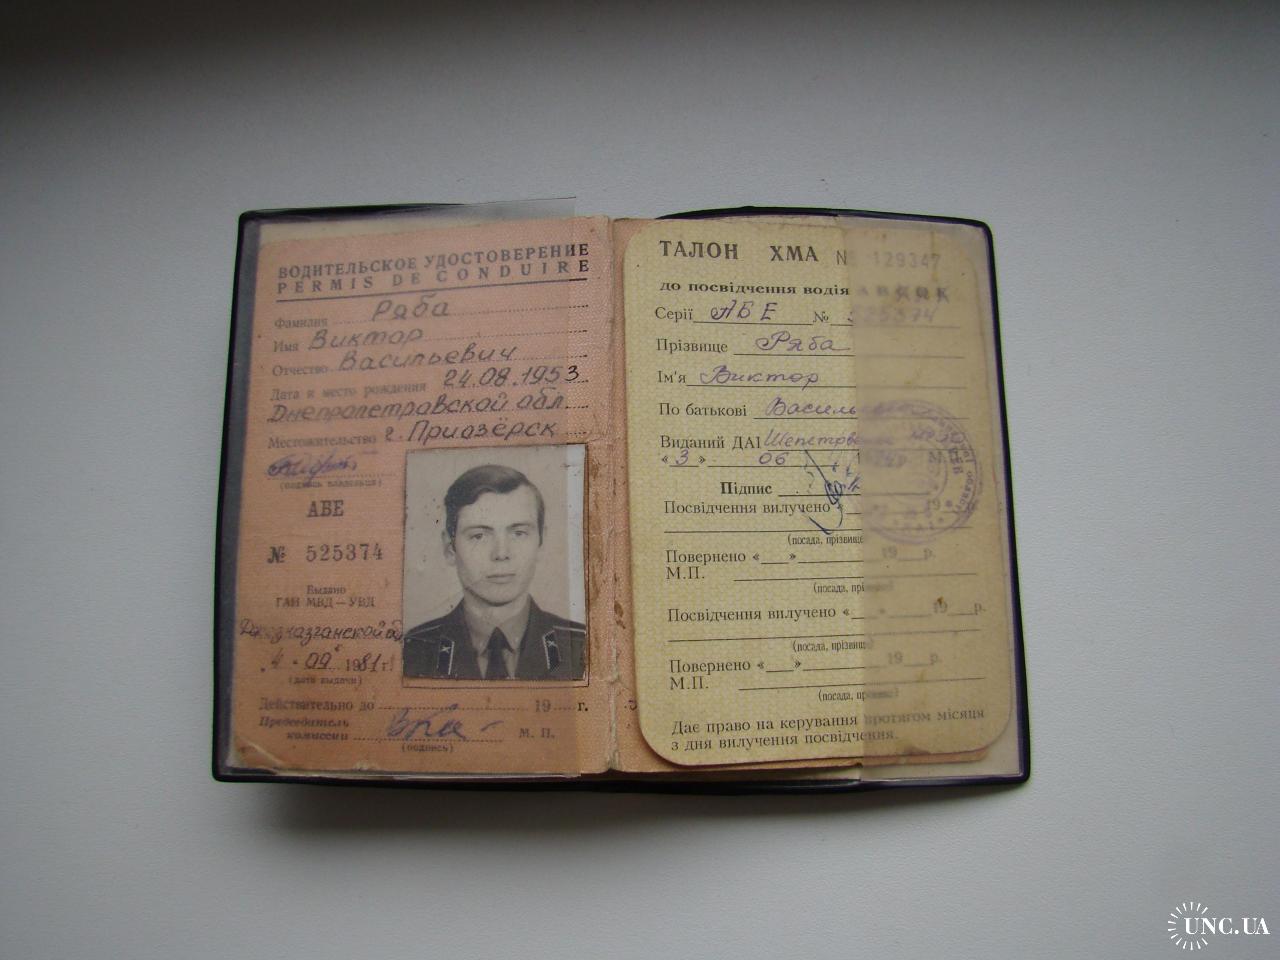 ВОДИТЕЛЬСКОЕ УДОСТОВЕРЕНИЕ
PERMIS DE CONDUIRE
Фамилия Ряба
Имя Виктор
Отчество Васильевич
Дата и место рождения 24.08.1953
Днепропетровской обл.
Местожительство г. Приозёрск
(подпись владельца)
АВЕ
№ 525374
Выдано
ГАИ МВД—УВД
Джезказганской
"4" 09 1981 г.
(дата выдачи)
Действительно до 19 г.
Председатель
комиссии М. П.
(подпись)
ТАЛОН ХМА № 129347
до посвідчення водія
Серії АБЕ № 525374
Прізвище Ряба
Ім'я Виктор
По батькові
Виданий ДАІ
«3» 06
Підпис
Посвідчення вилучено « 19 р.
(посада, прізвище
Повернено « » 19 р.
М.П.
(посада, прі
Посвідчення вилучено « » 19 р.
(посада, прізвище
Повернено « » 19 р.
М.П.
(посада, прізвище)
Дає право на керування протягом місяця
з дня вилучення посвідчення.
UNC.UA